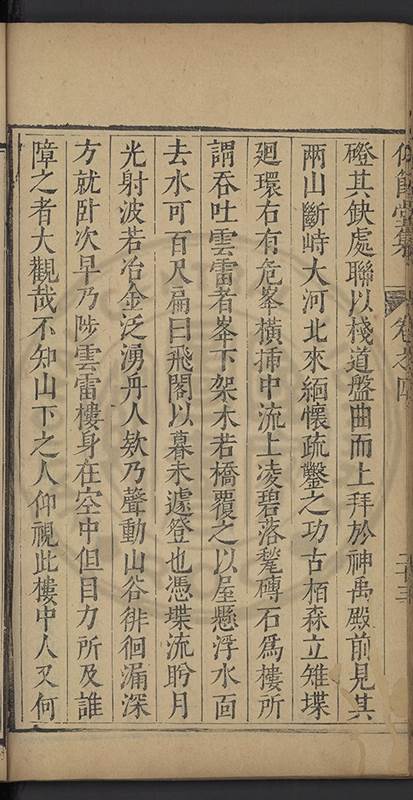 仰節堂集 卷之四 二十三
磴其缺處聯以棧道盤曲而上拜於神禹殿前見其
兩山斷峙大河北來緬懷疏鑿之功古栢森立雉堞
廻環右有危峯橫挿中流上凌碧落甃磚石爲樓所
謂吞吐雲雷者峯下架木若橋覆之以屋懸浮水面
去水可百尺扁曰飛閣以暮未遽登也憑堞流盻月
光射波若冶金泛湧丹人欸乃聲動山谷徘徊漏深
方就卧次早乃陟雲雷樓身在空中但目力所及誰
障之者大觀哉不知山下之人仰視此樓中人又何